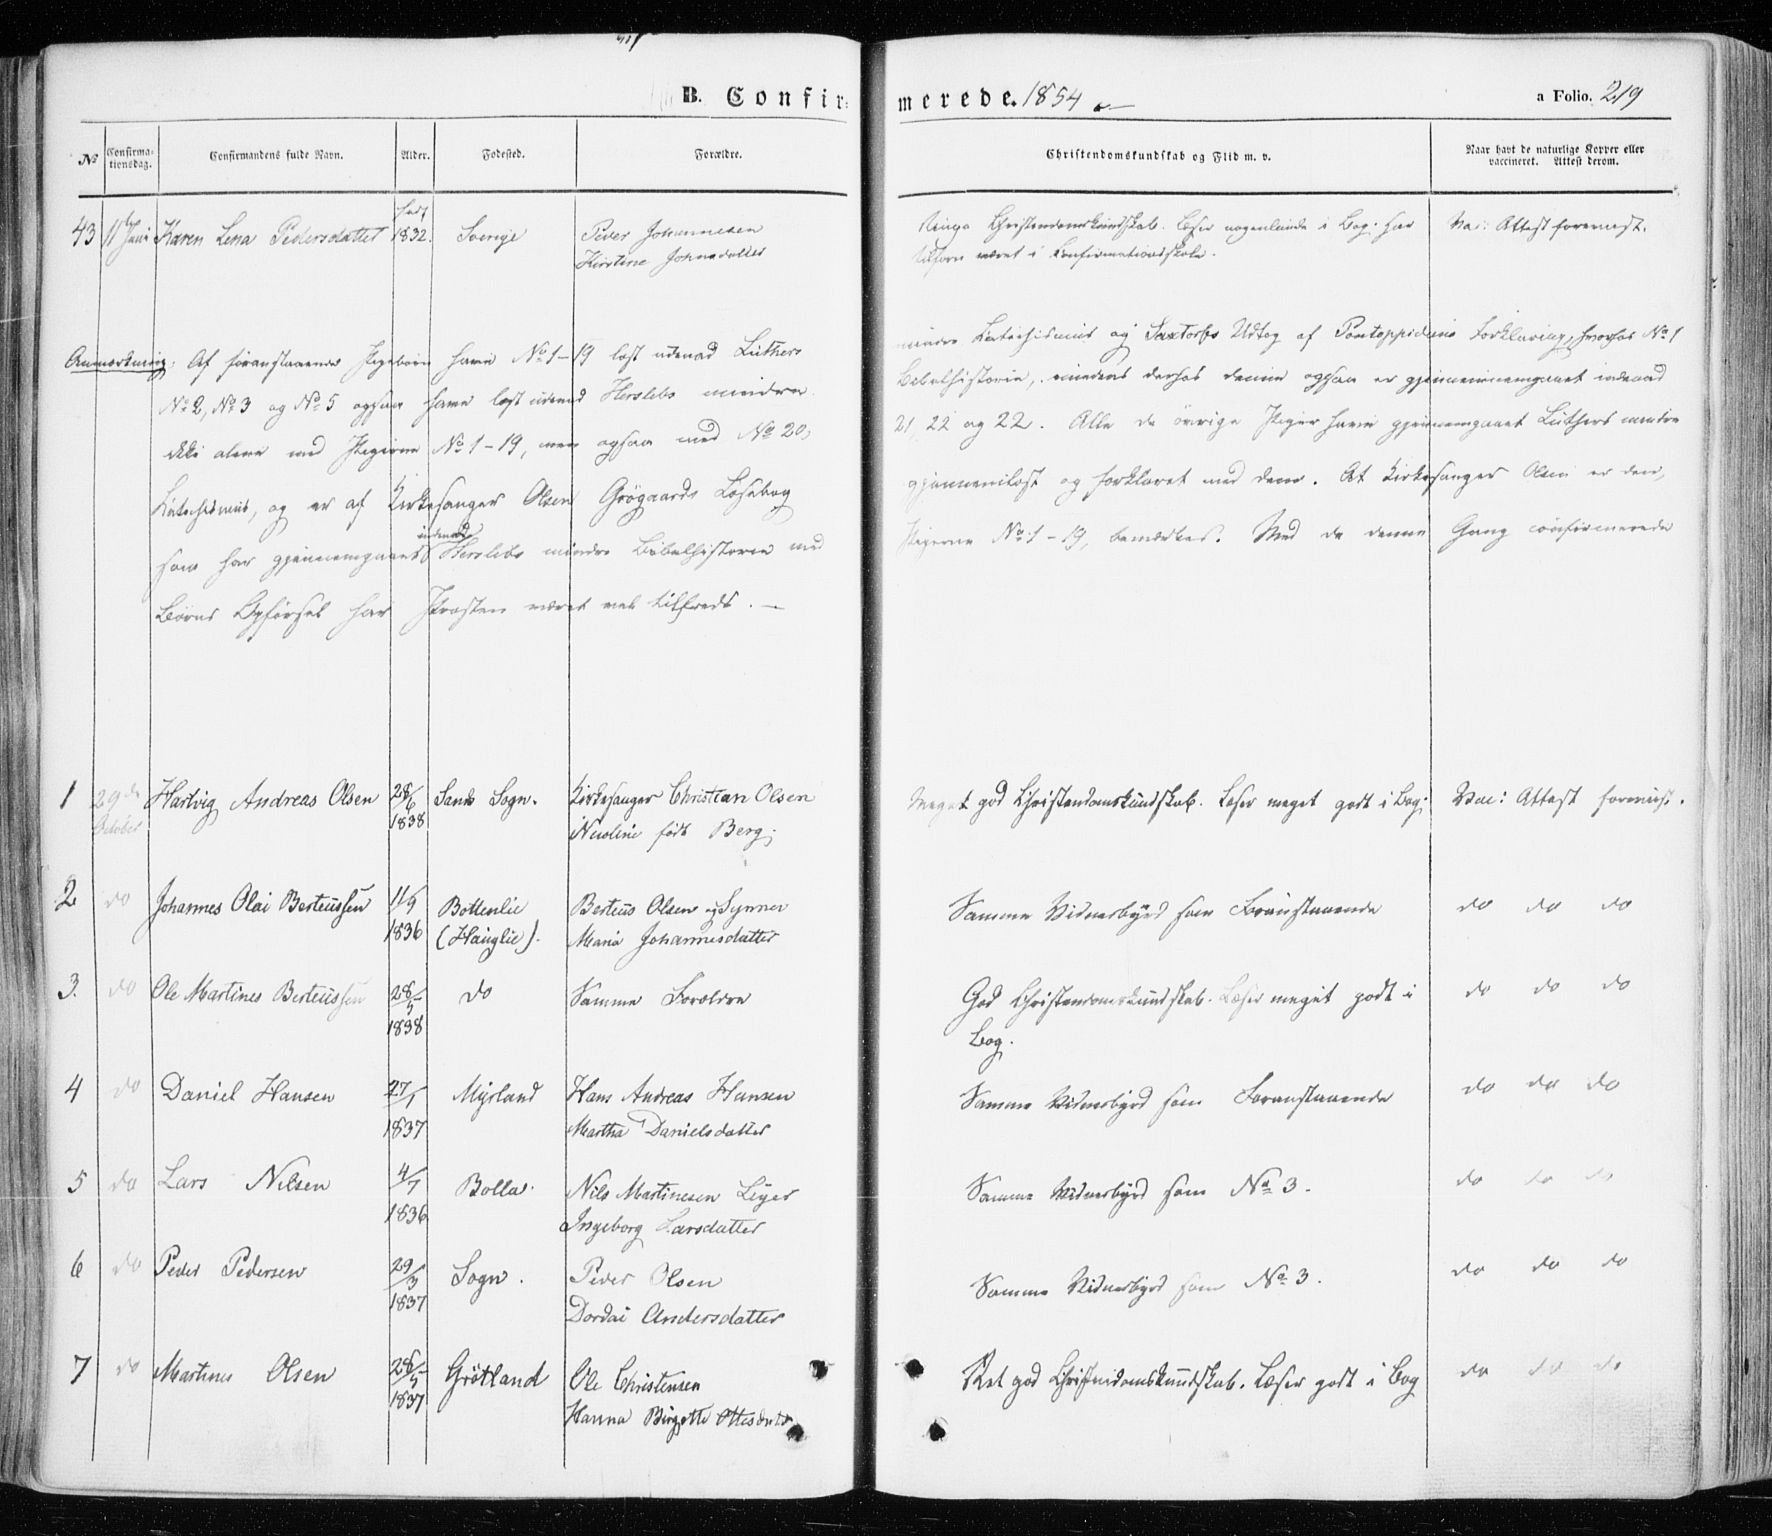 B. Confirmerede. 1854
a Folio. 219
No
Confirmationsdag.
Confirmandens fulde Navn.
Alder.
Fødested.
Forældre.
Christendomskundskab og Flid m. v.
Naar havt de naturlige Kopper eller vaccineret. Attest derom.
43 11 Juni Karen Lena Pedersdatter født 1832. Sverige Peder Johannesen Christendomskundskab. Læser nogenlunde i Bog. har Vac: Attest foreviist.
Kirstine Johnsdatter været i Confirmationsskole.
Anmærkning: Af foranstaaende Pigebørn have No 1-19 læst udenad Luthers mindre Katechismus og Saxtorfs Udtog af Pontoppidans Forklaring, hvorhos No 1
No 2, No 3 og No 5 ogsaa have læst udenad Herslebs mindre Bibelhistorie, denne ogsaa er gjennemgaaet udenad
ikke alene med Pigerne No 1-19, men ogsaa med No 20, 21, 22 og 22. Alle de øvrige Piger have gjennemgaaet Luthers mindre
Katechismus, og er af Kirkesanger Olsen Grøgaards Læsebog gjennemlæst og forklaret med dem. At Kirkesanger Olsen er den,
udenad
som har gjennemgaaet Herslebs mindre Bibelhistorie med Pigerne No 1-19, bemærkes. Med de denne Gang confirmerede
Børns Opførsel har Provsten været vel tilfreds. —
1 29de October Hartvig Andreas Olsen 28/6 1838 Sands Sogn. Kirkesanger Christian Olsen Meget god Christendomskundskab. Læser meget godt i Bog. Vac: Attest foreviist.
Nicoline født Berg.
2 do Johannes Olai Berteussen 11/9 1836 Bottenlie Berteus Olsen og Samme Vidnesbyrd som Foranstaaende do do do
(Hauglie). Maria Johannesdatter
3. do Ole Martines Berteussen 28/5 1838 do Samme Forældre God Christendomskundskab. Læser meget godt i do do do
Bog.
4 do Daniel Hansen 27/1 1837 Myrland Hans Andreas Hansen Samme Vidnesbyrd som Foranstaaende do do do
Martha Danielsdatter
5 do Lars Nilsen 4/7 1836 Bolla. Nils Martinesen Samme Vidnesbyrd som No 3. do do do
Ingeborg Larsdatter
6 do Peder Pedersen 29/3 1837 Sogn. Peder Olsen Samme Vidnesbyrd som No 3. do do do
Dordai Andersdatter
7 do Martines Olsen 28/5 1837 Grøtland Ole Christensen Ret god Christendomskundskab. Læser godt i Bog do do do
Hanna Birgette